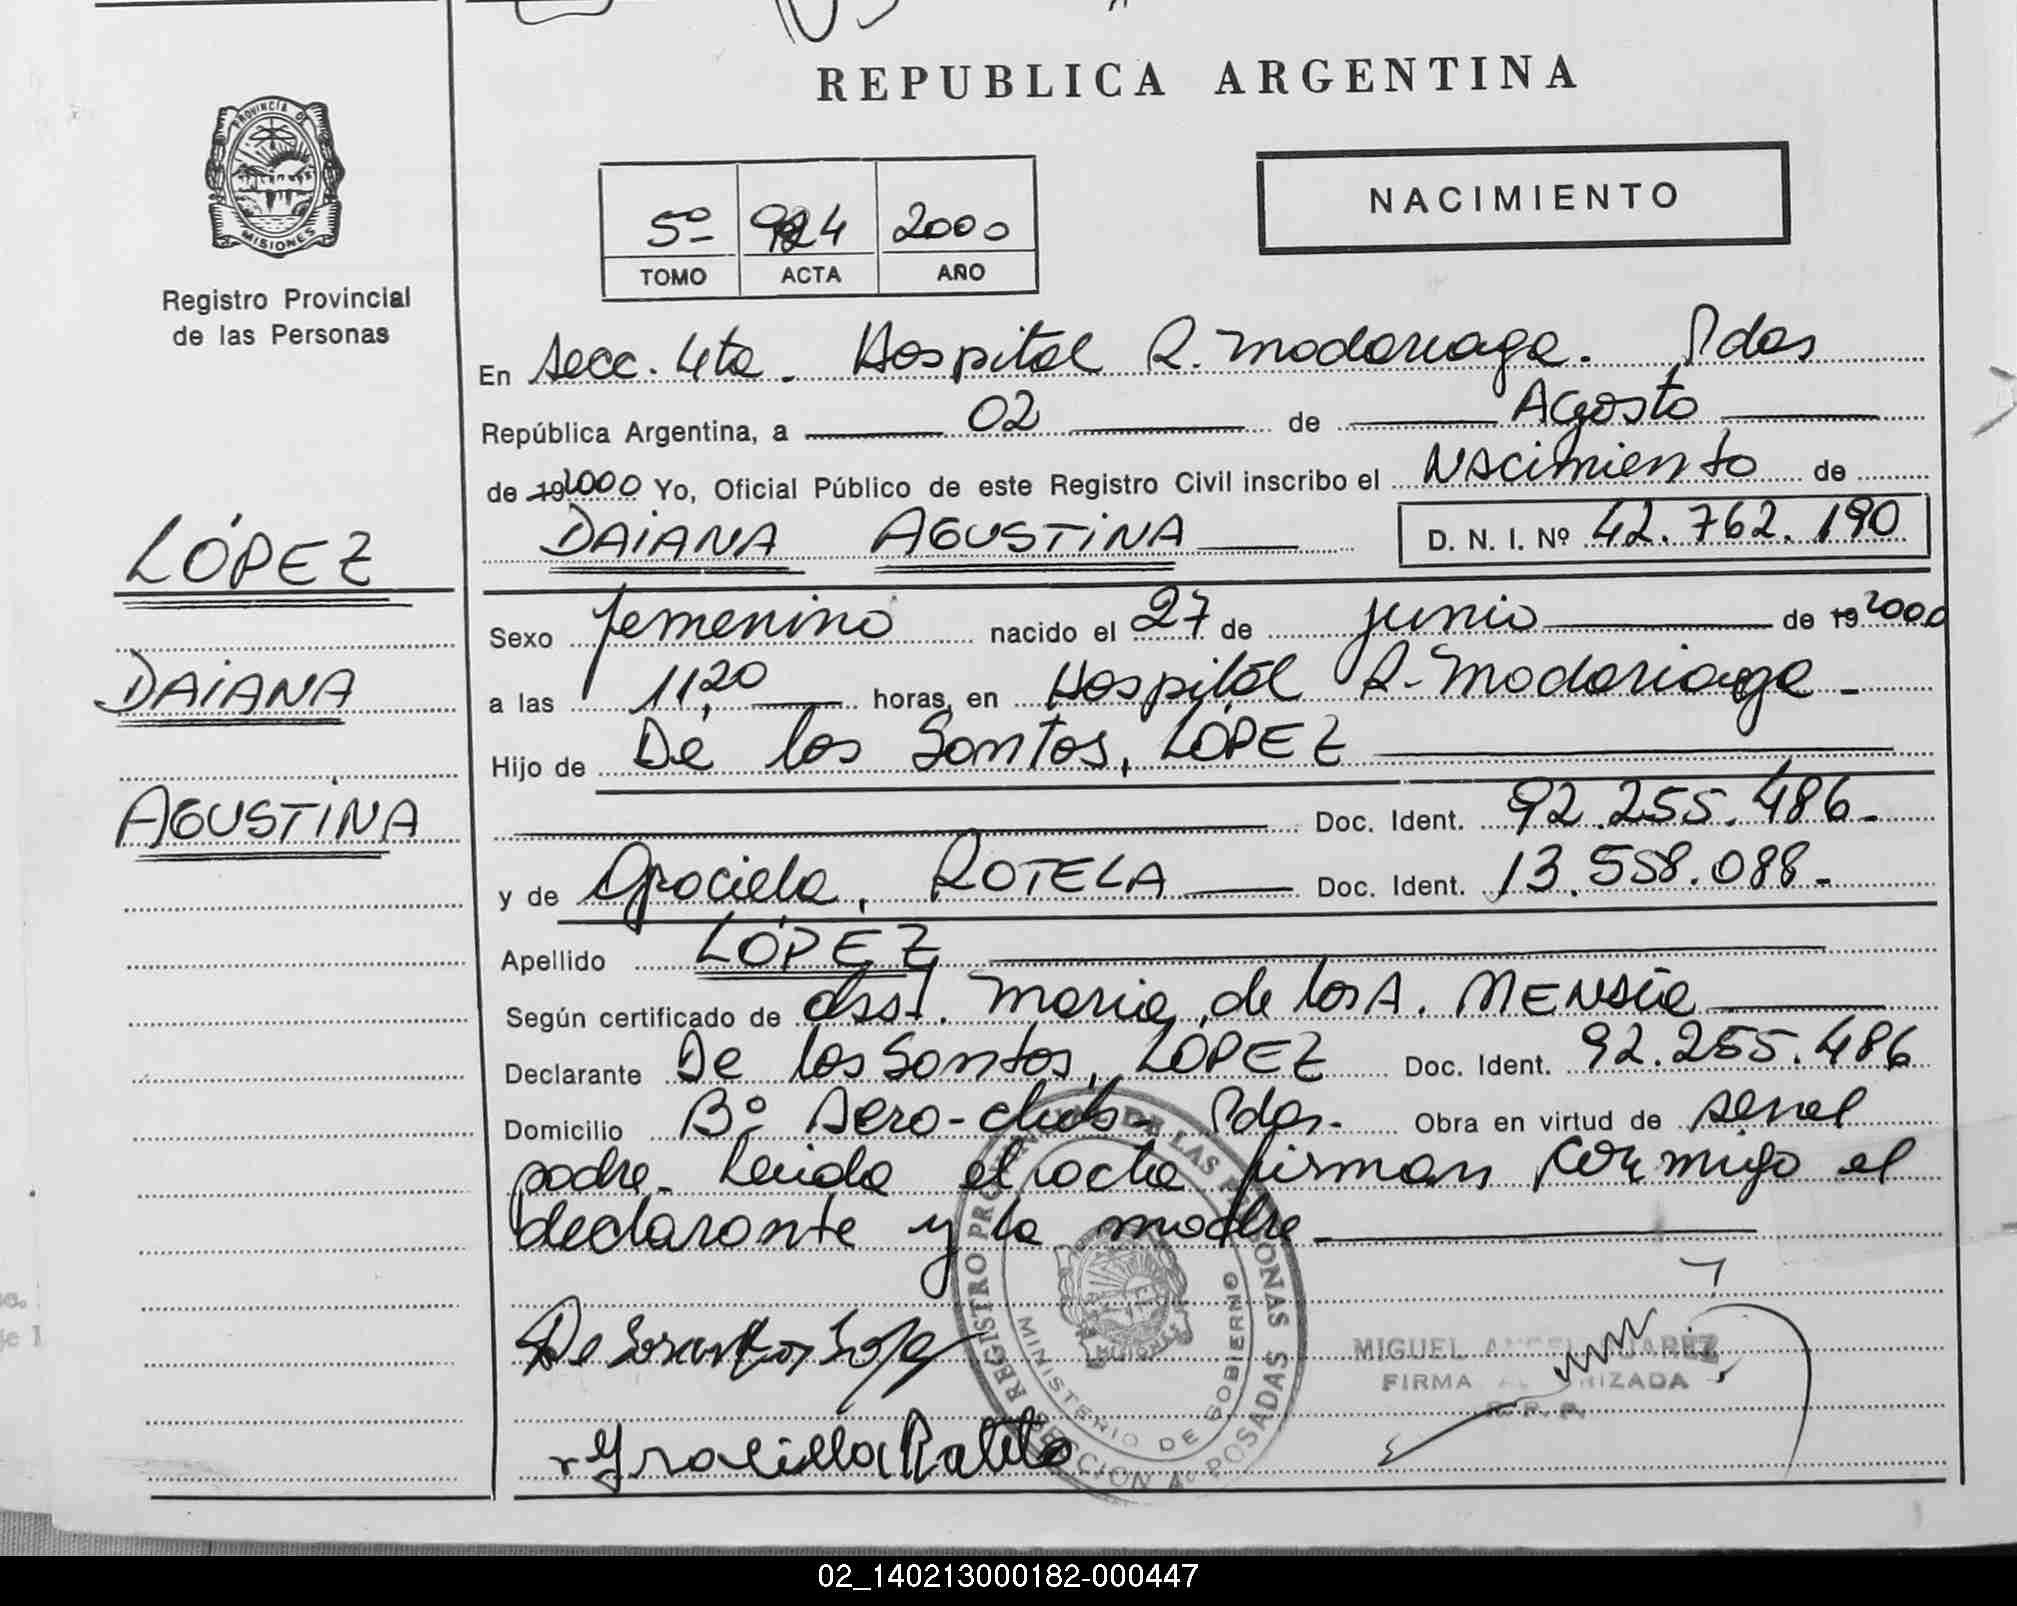 REPUBLICA ARGENTINA
PROVINCIA DE
MISIONES
Registro Provincial
de las Personas
LÓPEZ
DAIANA
AGUSTINA
5º 2000
TOMO ACTA AÑO
NACIMIENTO
En Secc. 4ta. Hospital R. Madariaga. Pdas
República Argentina, a 02 de Agosto
de 192000 Yo, Oficial Público de este Registro Civil inscribo el Nacimiento de
DAIANA AGUSTINA D. N. I. Nº 42.762.190
Sexo femenino nacido el 27 de junio de 19 2000
a las 11,20 horas, en Hospital R. Madariaga -
Hijo de De los Santos, LÓPEZ
Doc. Ident. 92.255.486.-
y de Graciela, ROTELA Doc. Ident. 13.558.088.-
Apellido LÓPEZ
Según certificado de María de los A. MENSÍA
Declarante De los Santos, LÓPEZ Doc. Ident. 92.255.486
Domicilio Bº Aero-club - Pdas. Obra en virtud de ser el
padre. Leida el acta firman conmigo el
declarante y la madre.
De los Santos Lopez
REGISTRO PROVINCIAL DE LAS PERSONAS
MINISTERIO DE GOBIERNO
SECCION 4º POSADAS
MIGUEL ANGEL JUAREZ
FIRMA AUTORIZADA
R. P. P.
Graciela Rotela
02_140213000182-000447